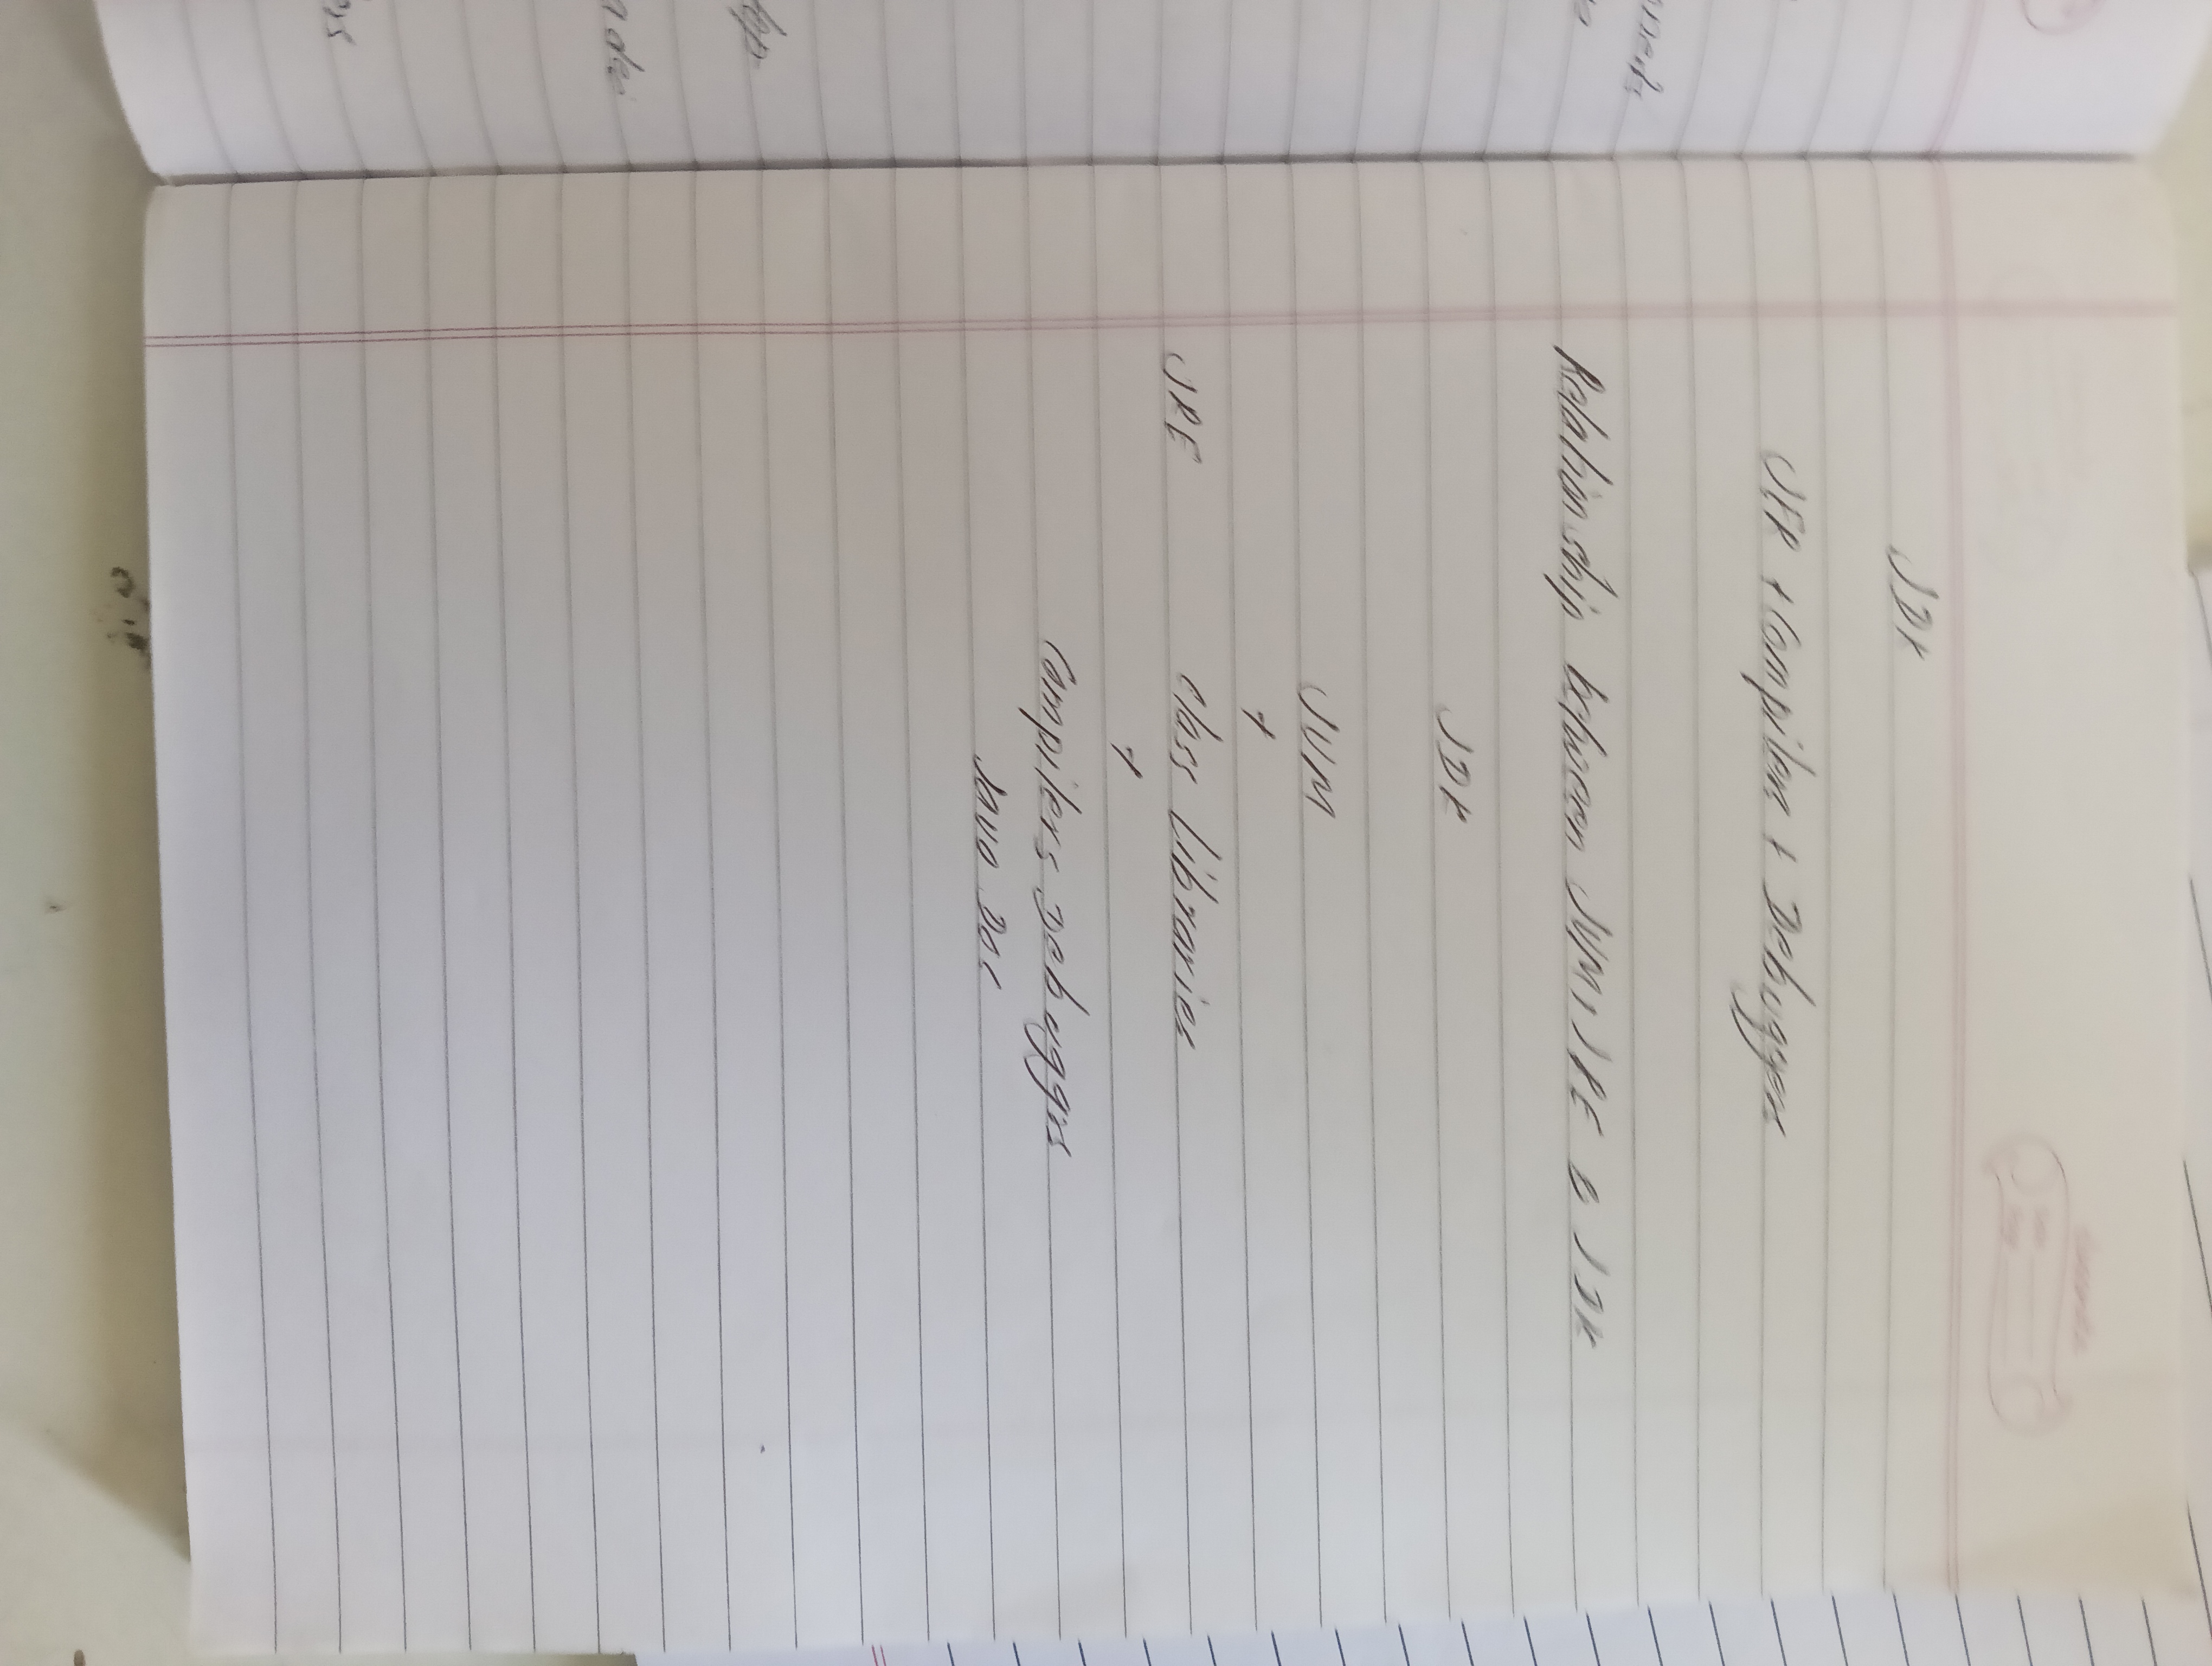 JDK
JER + Compiler + Debugger
Relationship between JVM, JRE & JDK
JDK
JVM
+
JRE Class Libraries
+
Compilers Debuggrs
Java Doc